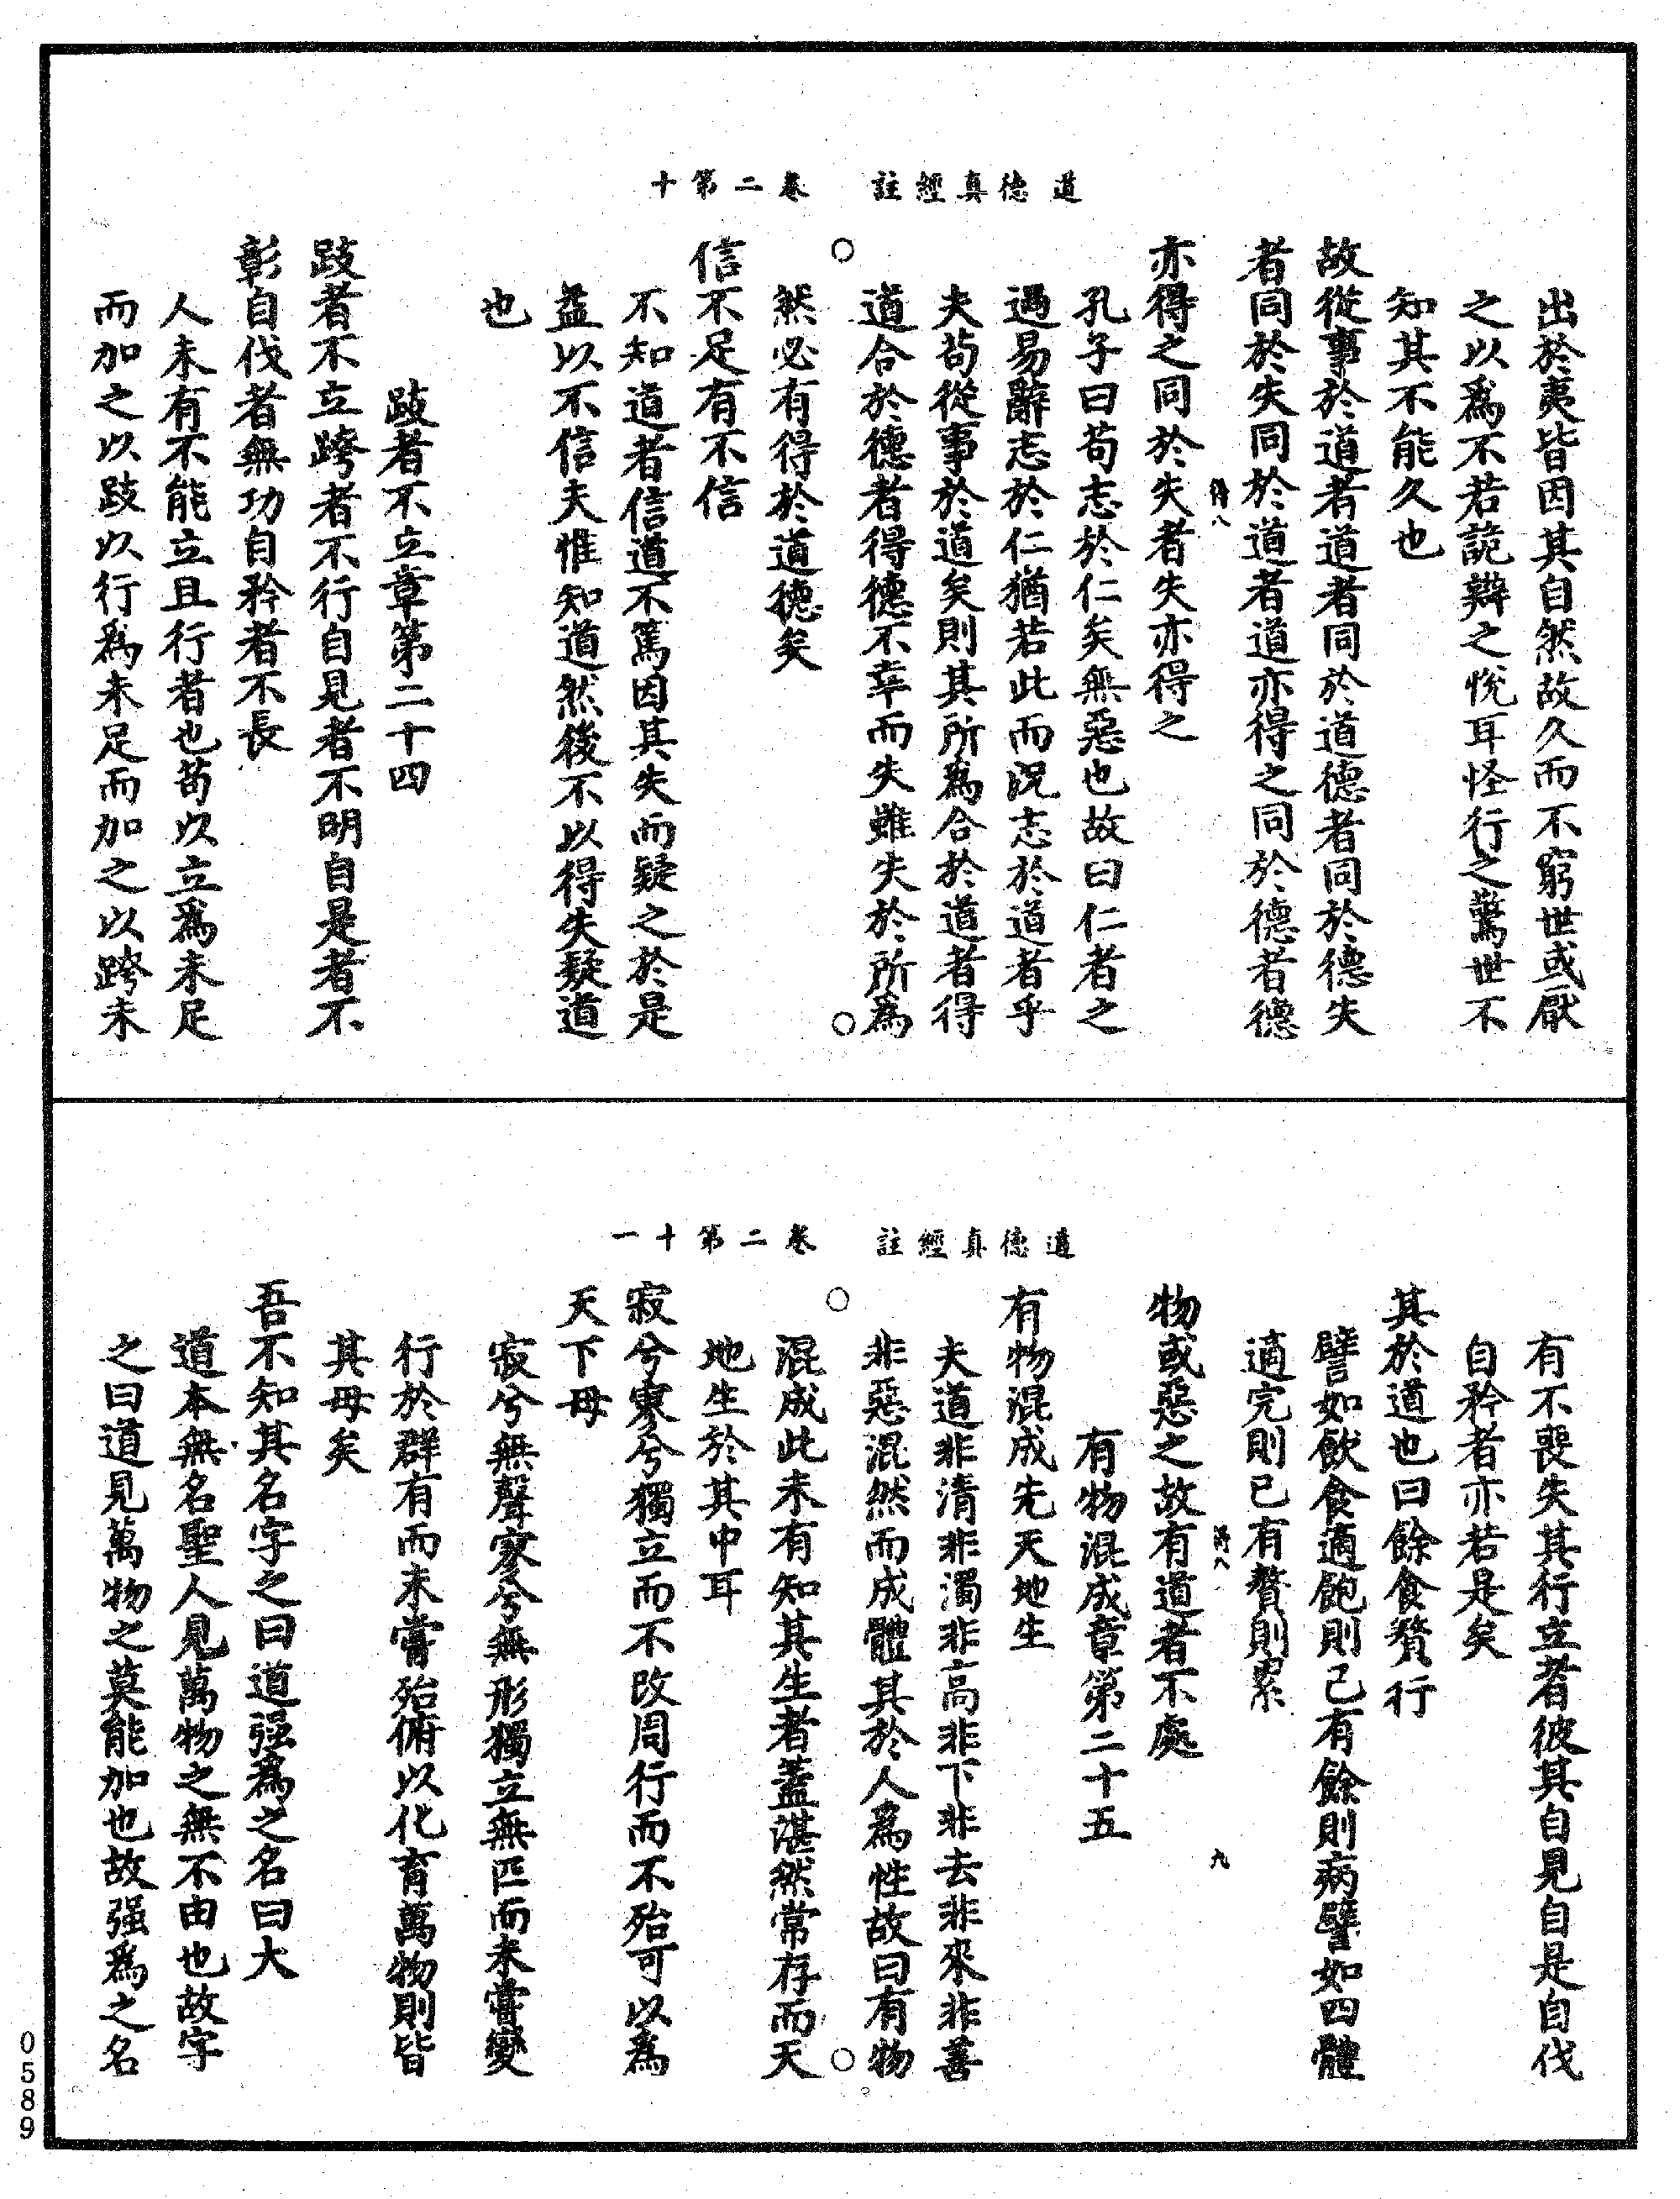 道德真經註　卷二第十
出於夷皆因其自然故久而不窮世或厭
之以爲不若詭辯之悅耳怪行之驚世不
知其不能久也
故從事於道者道者同於道德者同於德失
者同於失同於道者道亦得之同於德者德
亦得之同於失者失亦得之
孔子曰苟志於仁矣無惡也故曰仁者之
過易辭志於仁猶若此而況志於道者乎
夫苟從事於道矣則其所爲合於道者得
道合於德者得德不幸而失雖失於所爲
然必有得於道德矣
信不足有不信
不知道者信道不篤因其失而疑之於是
益以不信夫惟知道然後不以得失疑道
也
跂者不立章第二十四
跂者不立跨者不行自見者不明自是者不
彰自伐者無功自矜者不長
人未有不能立且行者也苟以立爲未足
而加之以跂以行爲未足而加之以跨未
道德真經註　卷二第十一
有不喪失其行立者彼其自見自是自伐
自矜者亦若是矣
其於道也曰餘食贅行
譬如飲食適飽則已有餘則病譬如四體
適完則已有贅則累
物或惡之故有道者不處
九
有物混成章第二十五
有物混成先天地生
夫道非清非濁非高非下非去非來非善
非惡混然而成體其於人爲性故曰有物
混成此未有知其生者蓋湛然常存而天
地生於其中耳
寂兮寥兮獨立而不改周行而不殆可以爲
天下母
寂兮無聲寥兮無形獨立無匹而未嘗變
行於群有而未嘗殆俯以化育萬物則皆
其母矣
吾不知其名字之曰道强爲之名曰大
道本無名聖人見萬物之無不由也故字
之曰道見萬物之莫能加也故强爲之名
0589